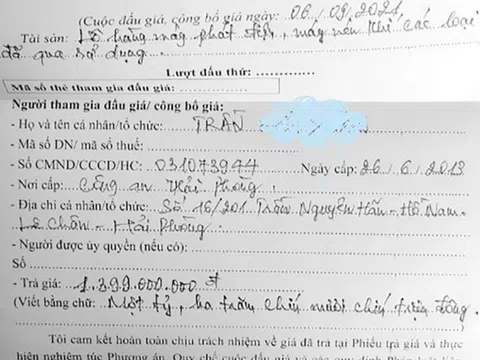 (Cuộc đấu giá, công bố giá ngày: 06/09/2021
Tài sản: Lô hàng máy phát điện, máy nén khí các loại
đã qua sử dụng.
Lượt đấu thứ: ...............
Mã số thẻ tham gia đấu giá: ...............
Người tham gia đấu giá/ công bố giá:
- Họ và tên cá nhân/tổ chức: TRẦN
- Mã số DN/ mã số thuế: ...............
- Số CMND/CCCD/HC: 031073944 Ngày cấp: 26/6/2013
- Nơi cấp: Công an Hải Phòng.
- Địa chỉ cá nhân/tổ chức: Số 16/201 Trần Nguyên Hãn - Hồ Nam -
Lê Chân - Hải Phòng.
- Người được ủy quyền (nếu có): ...............
Số ...............
- Trả giá: 1.399.000.000 đ
(Viết bằng chữ: Một tỷ, ba trăm chín mươi chín triệu đồng.
Tôi cam kết hoàn toàn chịu trách nhiệm về giá đã trả tại Phiếu trả giá và thực
hiện nghiêm túc Phương án, Quy chế cuộc đấu giá